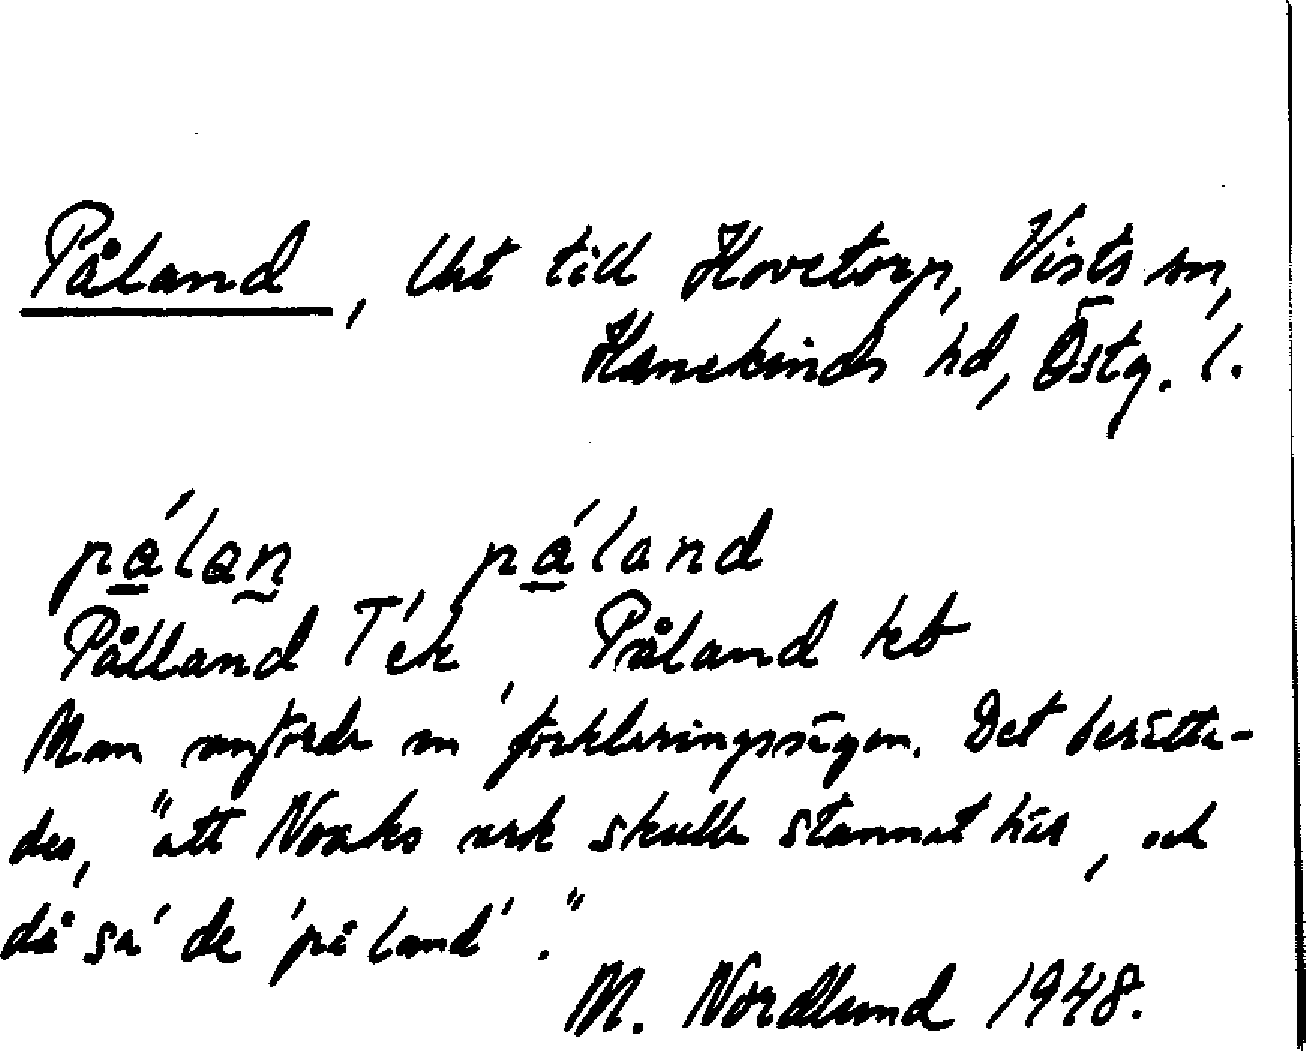 Påland, Uht till Hovetorp, Vists sn,
Hanekinds hd, Östg. l.
pá̱lan̰ pá̱land
Pålland Tek, Påland kb
Man anförde en förklaringssägen. Det berätta-
des, "att Noaks ark skulle stannat här, och
då sa' de 'på land'."
M. Nordlund 1948.